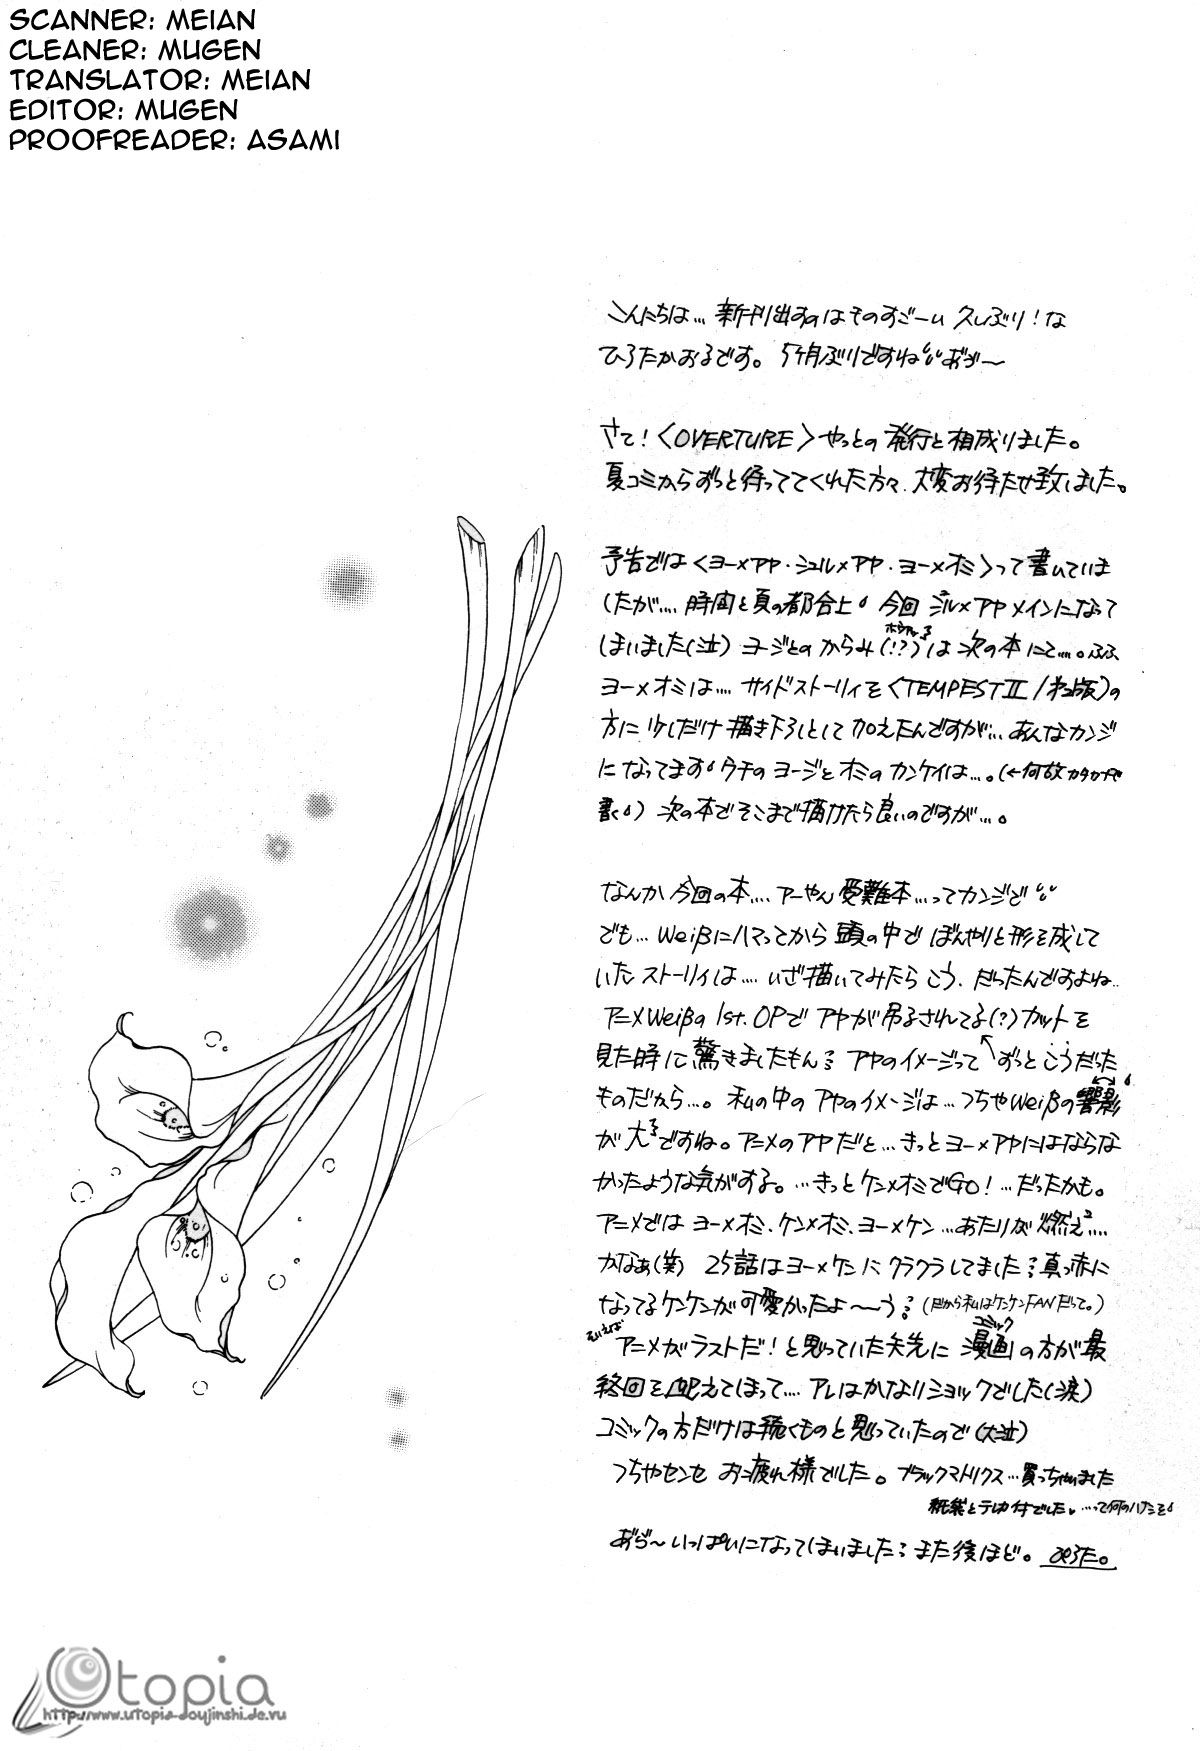 SCANNER: MEIAN
CLEANER: MUGEN
TRANSLATOR: MEIAN
EDITOR: MUGEN
PROOFREADER: ASAMI
こんにちは… 新刊出すのはものすごーい 久しぶり!な
ひろたかおるです。5ヶ月ぶりですね あぢ〜
さて!〈OVERTURE〉やっとの発行と相成りました。
夏コミからずっと待っててくれた方々、大変お待たせ致しました。
予告では〈ヨーメアヤ・シュルメアヤ・ヨーメオミ〉って書いていま
したが…. 時間と頁の都合上 今回 シュルメアヤ メインになって
しまいました(泣) ヨージとのからみ(!?)は次の本にて…。ふふ
ヨーメオミは…. サイドストーリィを〈TEMPESTⅡ/ 〉の
方に少しだけ描き下ろしとして加えたんですが… あんなカンジ
になってます ウチのヨージとオミのカンケイは…。(←何故カタカナで
書く) 次の本でそこまで描けたら良いのですが…。
なんか今回の本…. アーやん受難本…ってカンジで
でも… Weißにハマってから頭の中で ぼんやりと形を成して
いたストーリィは…. いざ描いてみたら こう、だったんですよね..
アニメWeißの1st.OPでアヤが吊るされてる(?)カットを
見た時に驚きましたもん アヤのイメージって ずっとこうだった
ものだから…。私の中のアヤのイメージは…つちやWeißの影響
が大ですね。アニメのアヤだと…きっとヨーメアヤにはならな
かったような気がする。…きっとケンメオミでGO!…だったかも。
アニメではヨーメオミ、ケンメオミ、ヨーメケン…あたりが"燃え"….
かなぁ(笑) 25話はヨーメケンにクラクラしてました 真っ赤に
なってるケンケンが可愛かったよ〜う (だから私はケンケンFANだって。)
そういえば アニメがラストだ!と思っていた矢先に 漫画の方が最
コミック
終回を迎えてしまって…. アレはかなりショックでした(涙)
コミックの方だけは続くものと思っていたので(大泣)
つちやセンセ お疲れ様でした。ブラックマトリクス…買っちゃいました
紙袋とテレカ付でした。…って何のハナシを
あぢ〜いっぱいになってしまいました また後ほど。 ひろた。
Utopia
http://www.utopia-doujinshi.de.vu